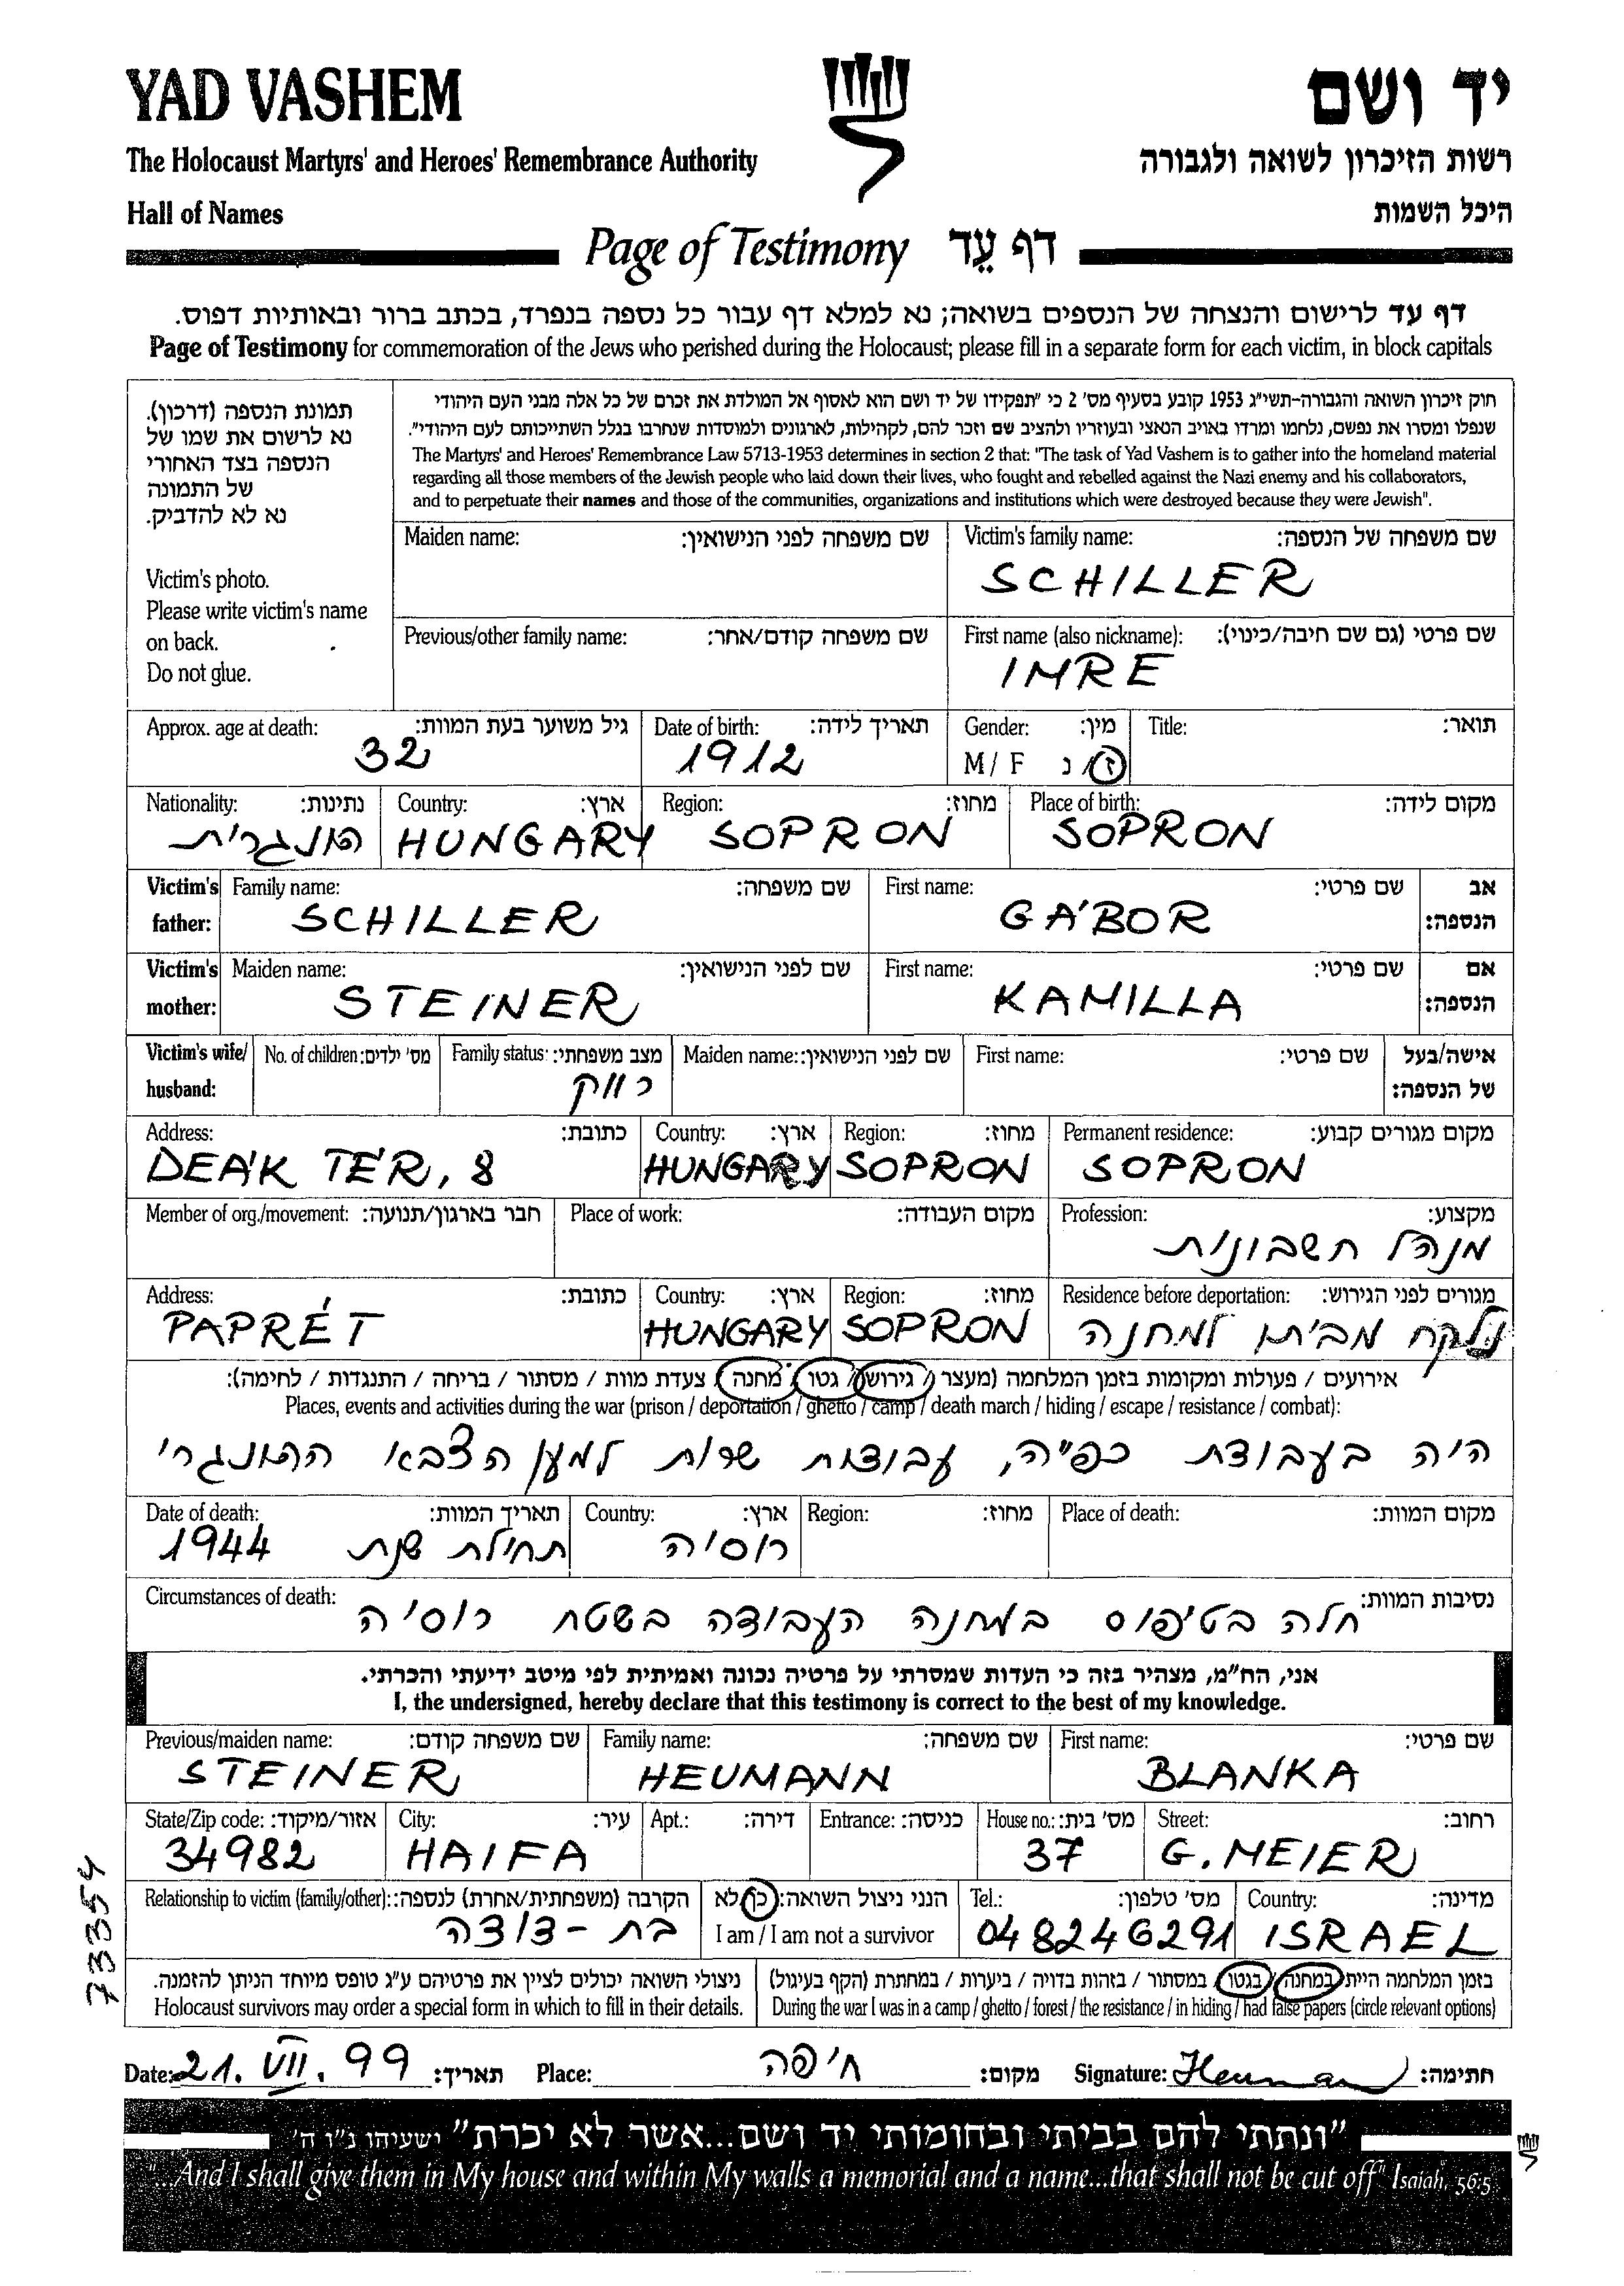 YAD VASHEM
יד ושם
The Holocaust Martyrs' and Heroes' Remembrance Authority
רשות הזיכרון לשואה ולגבורה
Hall of Names
היכל השמות
Page of Testimony דף עֵד
דף עד לרישום והנצחה של הנספים בשואה; נא למלא דף עבור כל נספה בנפרד, בכתב ברור ובאותיות דפוס.
Page of Testimony for commemoration of the Jews who perished during the Holocaust; please fill in a separate form for each victim, in block capitals
תמונת הנספה (דרכון).
נא לרשום את שמו של
הנספה בצד האחורי
של התמונה
נא לא להדביק.
Victim's photo.
Please write victim's name
on back.
Do not glue.
חוק זיכרון השואה והגבורה-תשי"ג 1953 קובע בסעיף מס' 2 כי "תפקידו של יד ושם הוא לאסוף אל המולדת את זכרם של כל אלה מבני העם היהודי
שנפלו ומסרו את נפשם, נלחמו ומרדו באויב הנאצי ובעוזריו ולהציב שם וזכר להם, לקהילות, לארגונים ולמוסדות שנחרבו בגלל השתייכותם לעם היהודי".
The Martyrs' and Heroes' Remembrance Law 5713-1953 determines in section 2 that: "The task of Yad Vashem is to gather into the homeland material
regarding all those members of the Jewish people who laid down their lives, who fought and rebelled against the Nazi enemy and his collaborators,
and to perpetuate their names and those of the communities, organizations and institutions which were destroyed because they were Jewish".
Maiden name: שם משפחה לפני הנישואין: Victim's family name: שם משפחה של הנספה:
SCHILLER
Previous/other family name: שם משפחה קודם/אחר: First name (also nickname): שם פרטי (גם שם חיבה/כינוי):
IMRE
Approx. age at death: גיל משוער בעת המוות: Date of birth: תאריך לידה: Gender: מין: Title: תואר:
32 1912 M / F ז/נ
Nationality: נתינות: Country: ארץ: Region: מחוז: Place of birth: מקום לידה:
הונגרית HUNGARY SOPRON SOPRON
Victim's father: Family name: שם משפחה: First name: שם פרטי: אב הנספה:
SCHILLER GÁBOR
Victim's mother: Maiden name: שם לפני הנישואין: First name: שם פרטי: אם הנספה:
STEINER KAMILLA
Victim's wife/ husband: No. of children: מס' ילדים: Family status: מצב משפחתי: Maiden name: שם לפני הנישואין: First name: שם פרטי: אישה/בעל של הנספה:
רווק
Address: כתובת: Country: ארץ: Region: מחוז: Permanent residence: מקום מגורים קבוע:
DEÁK TÉR, 8 HUNGARY SOPRON SOPRON
Member of org./movement: חבר בארגון/תנועה: Place of work: מקום העבודה: Profession: מקצוע:
מנהל חשבונות
Address: כתובת: Country: ארץ: Region: מחוז: Residence before deportation: מגורים לפני הגירוש:
PAPRÉT HUNGARY SOPRON נלקח מביתו למחנה
אירועים / פעולות ומקומות בזמן המלחמה (מעצר / גירוש / גטו / מחנה / צעדת מוות / מסתור / בריחה / התנגדות / לחימה):
Places, events and activities during the war (prison / deportation / ghetto / camp / death march / hiding / escape / resistance / combat):
היה בעבודת כפייה, עבודות שרות למען הצבא ההונגרי
Date of death: תאריך המוות: Country: ארץ: Region: מחוז: Place of death: מקום המוות:
תחילת שנת 1944 רוסיה
Circumstances of death: נסיבות המוות:
חלה בטיפוס במחנה העבודה בשטח רוסיה
אני, הח"מ, מצהיר בזה כי העדות שמסרתי על פרטיה נכונה ואמיתית לפי מיטב ידיעתי והכרתי.
I, the undersigned, hereby declare that this testimony is correct to the best of my knowledge.
Previous/maiden name: שם משפחה קודם: Family name: שם משפחה: First name: שם פרטי:
STEINER HEUMANN BLANKA
State/Zip code: אזור/מיקוד: City: עיר: Apt.: דירה: Entrance: כניסה: House no.: מס' בית: Street: רחוב:
34982 HAIFA 37 G. MEIER
Relationship to victim (family/other): הקרבה (משפחתית/אחרת) לנספה: הנני ניצול השואה: כן/לא Tel.: מס' טלפון: Country: מדינה:
בת-דודה I am / I am not a survivor 048246291 ISRAEL
ניצולי השואה יכולים לציין את פרטיהם ע"ג טופס מיוחד הניתן להזמנה. בזמן המלחמה הייתי במחנה / בגטו / במסתור / בזהות בדויה / ביערות / במחתרת (הקף בעיגול)
Holocaust survivors may order a special form in which to fill in their details. During the war I was in a camp / ghetto / forest / the resistance / in hiding / had false papers (circle relevant options)
73354
Date: 21. VII. 99 תאריך: Place: חיפה מקום: Signature: Heumann חתימה:
"ונתתי להם בביתי ובחומותי יד ושם...אשר לא יכרת" ישעיהו נ"ו ה'
"...And I shall give them in My house and within My walls a memorial and a name...that shall not be cut off" Isaiah, 56:5